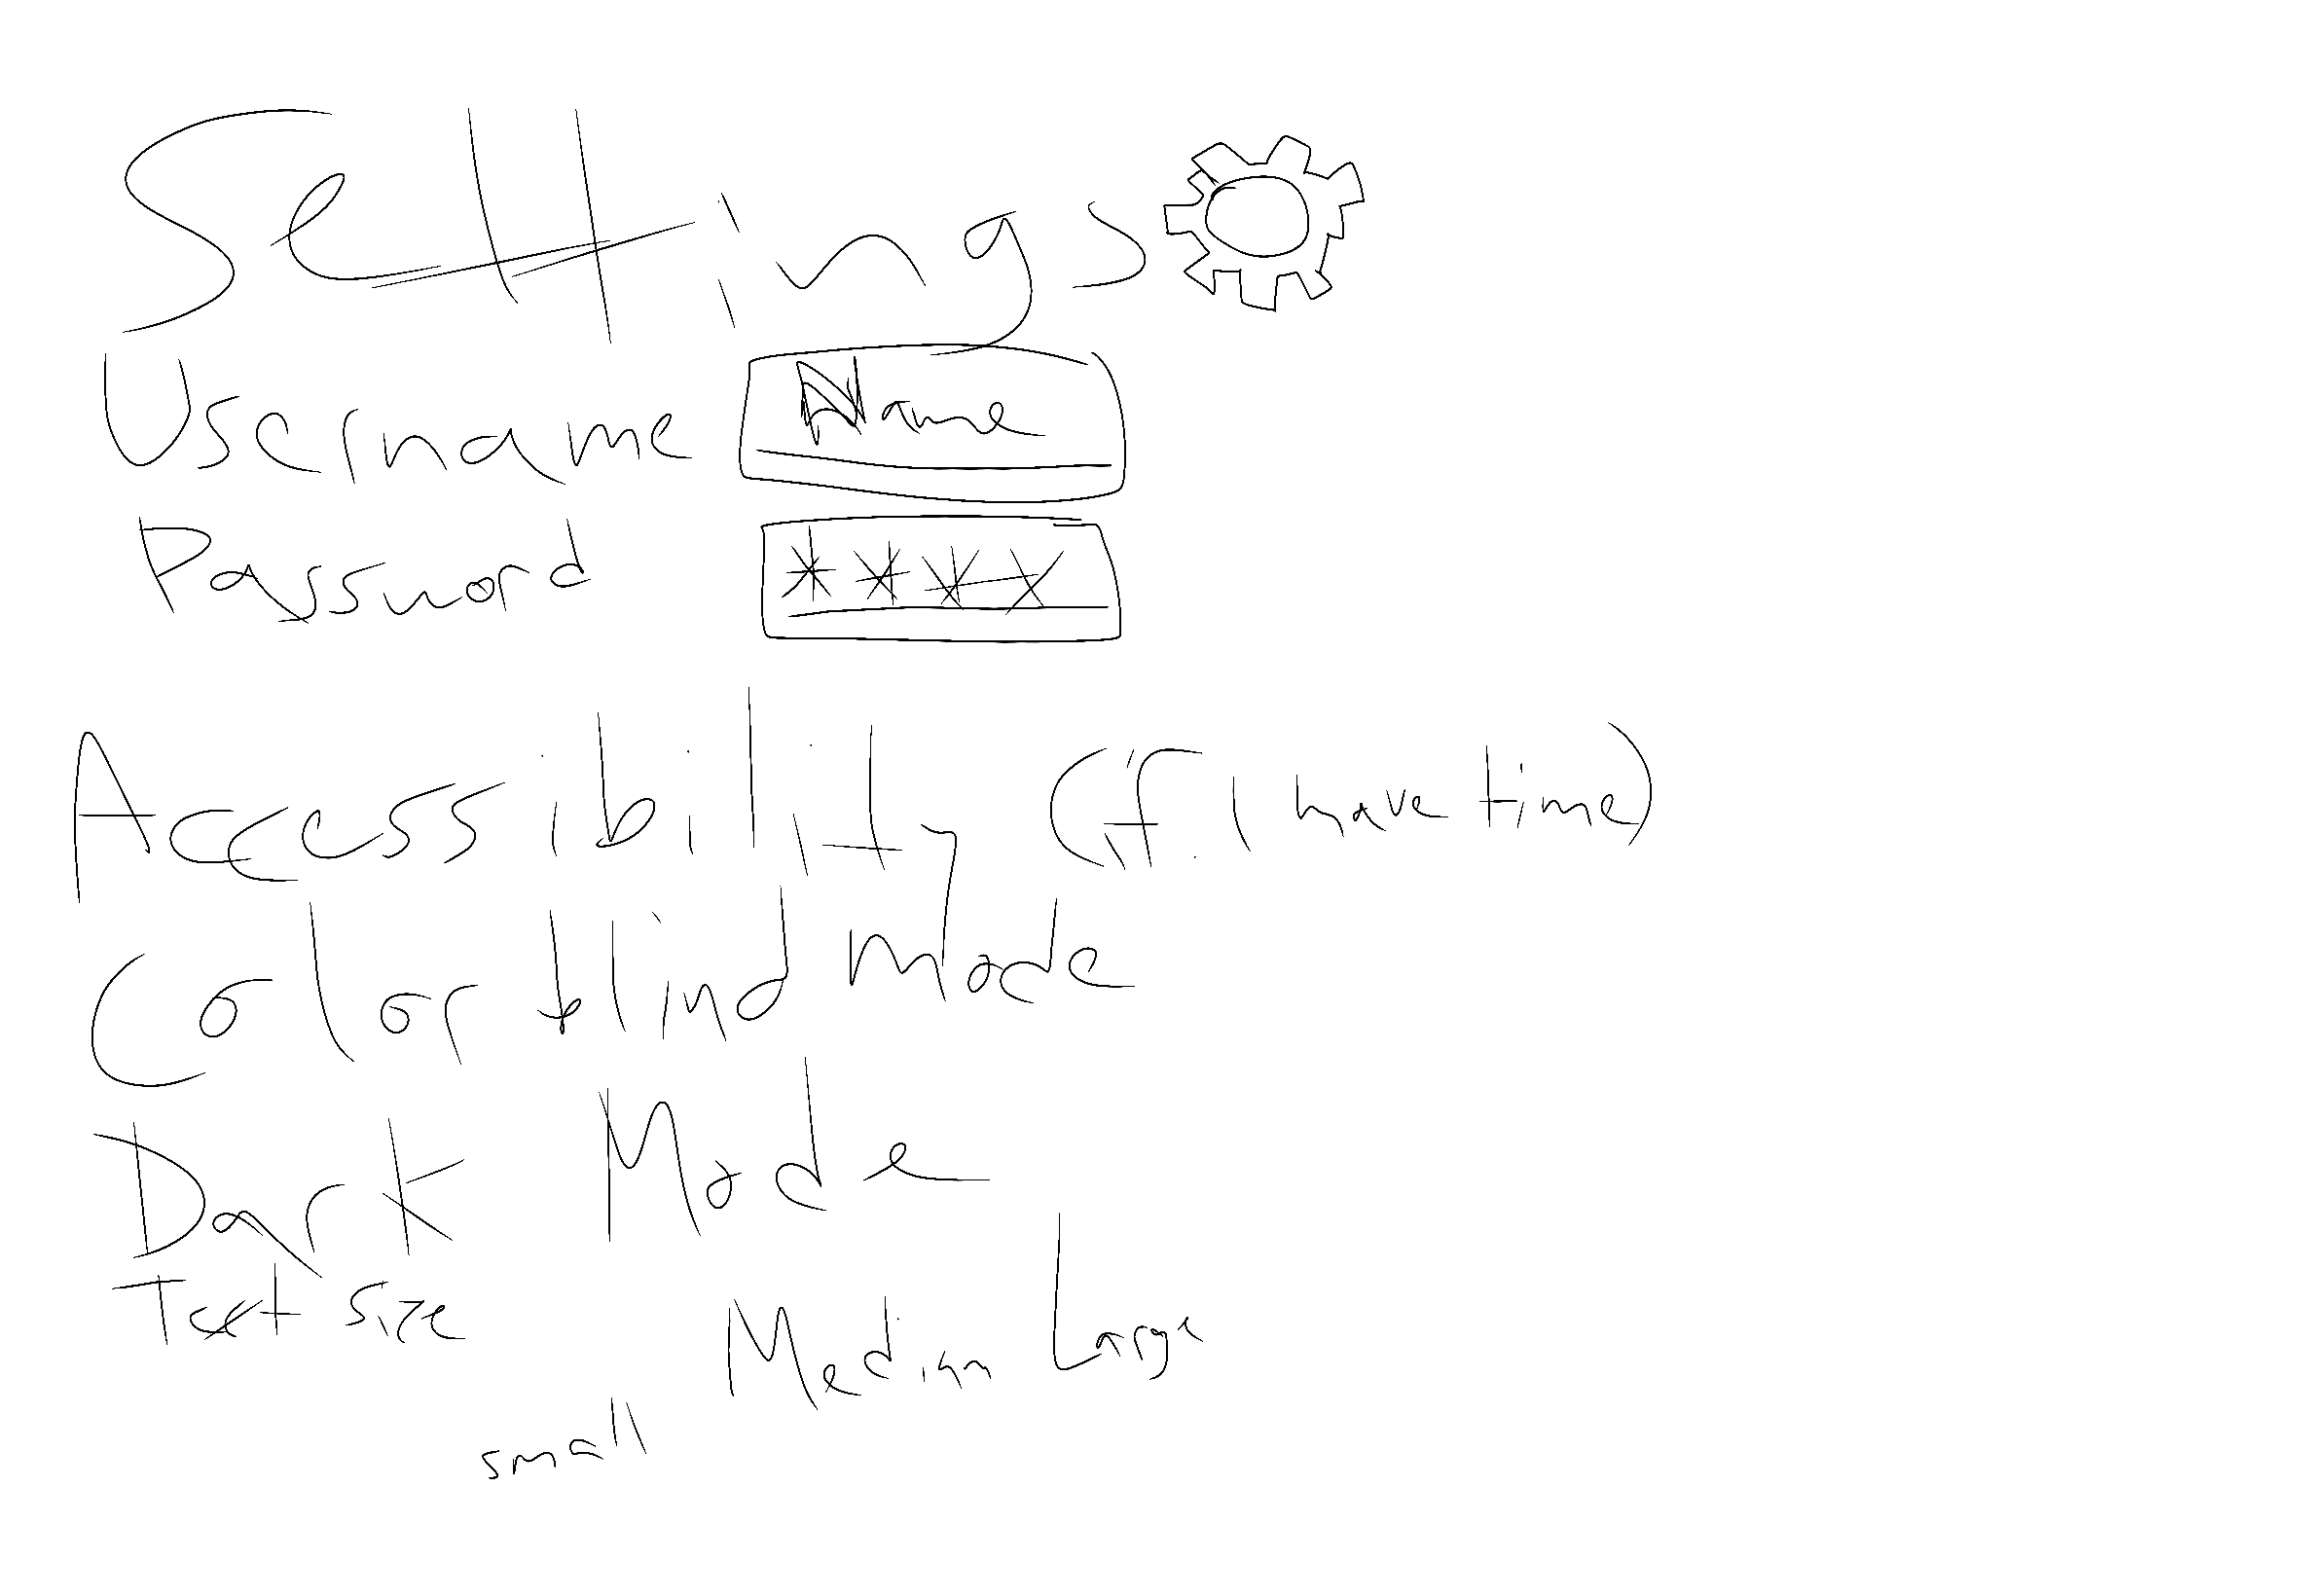 Settings
Username Name
Password ****
Accessibility (if I have time)
Color blind mode
Dark Mode
Text size
small Median Large